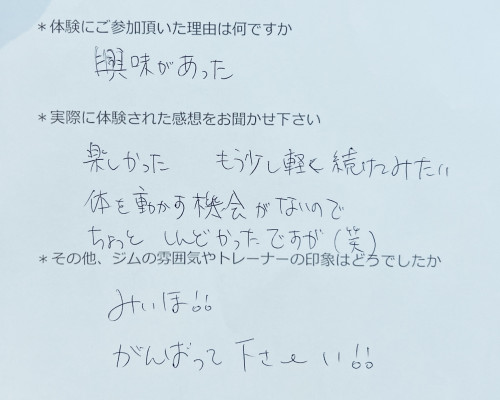 ＊体験にご参加頂いた理由は何ですか
興味があった
＊実際に体験された感想をお聞かせ下さい
楽しかった　もう少し軽く続けてみたい
体を動かす機会がないので
ちょっと しんどかったですが（笑）
＊その他、ジムの雰囲気やトレーナーの印象はどうでしたか
みいほ!!
がんばって下さーい!!